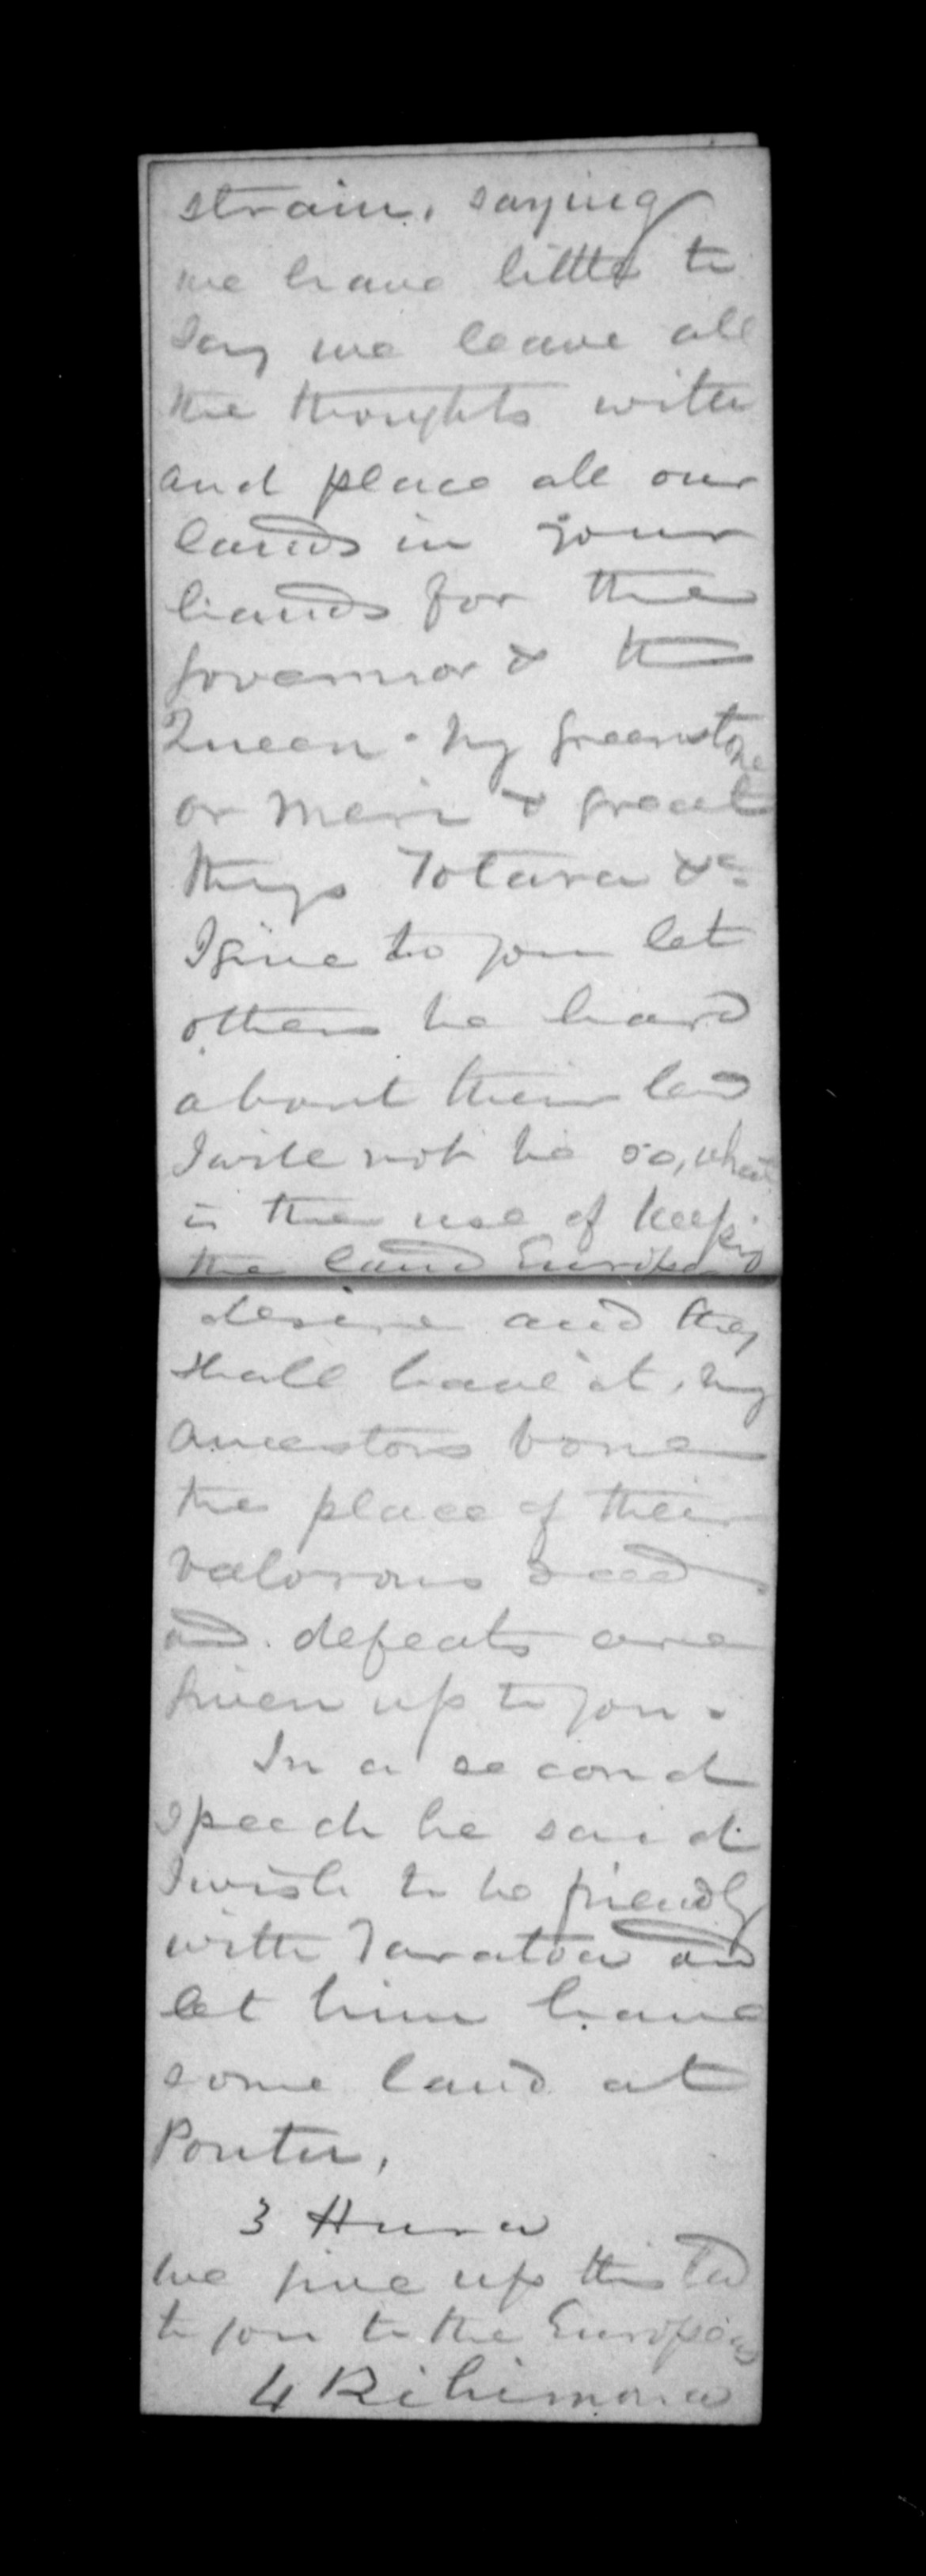 strain, saying
we have little to
say we leave all
the thoughts with
and place all our
lands in your
hands for the
Governor & the
Queen. my greenstone
or meri & great
things Totara &c
I give to you let
others be hard
about their land
I will not be so, what
is the use of keeping
the land Europeans
desire and they
shall have it, my
ancestors bones
the place of their
valorous deeds
and defeats are
given up to you.
In a second
speech he said
I wish to be friendly
with Taratoa and
let him have
some land at
Poutu,
3 Hura
we give up this land
to you to the Europeans
4 Rihimona